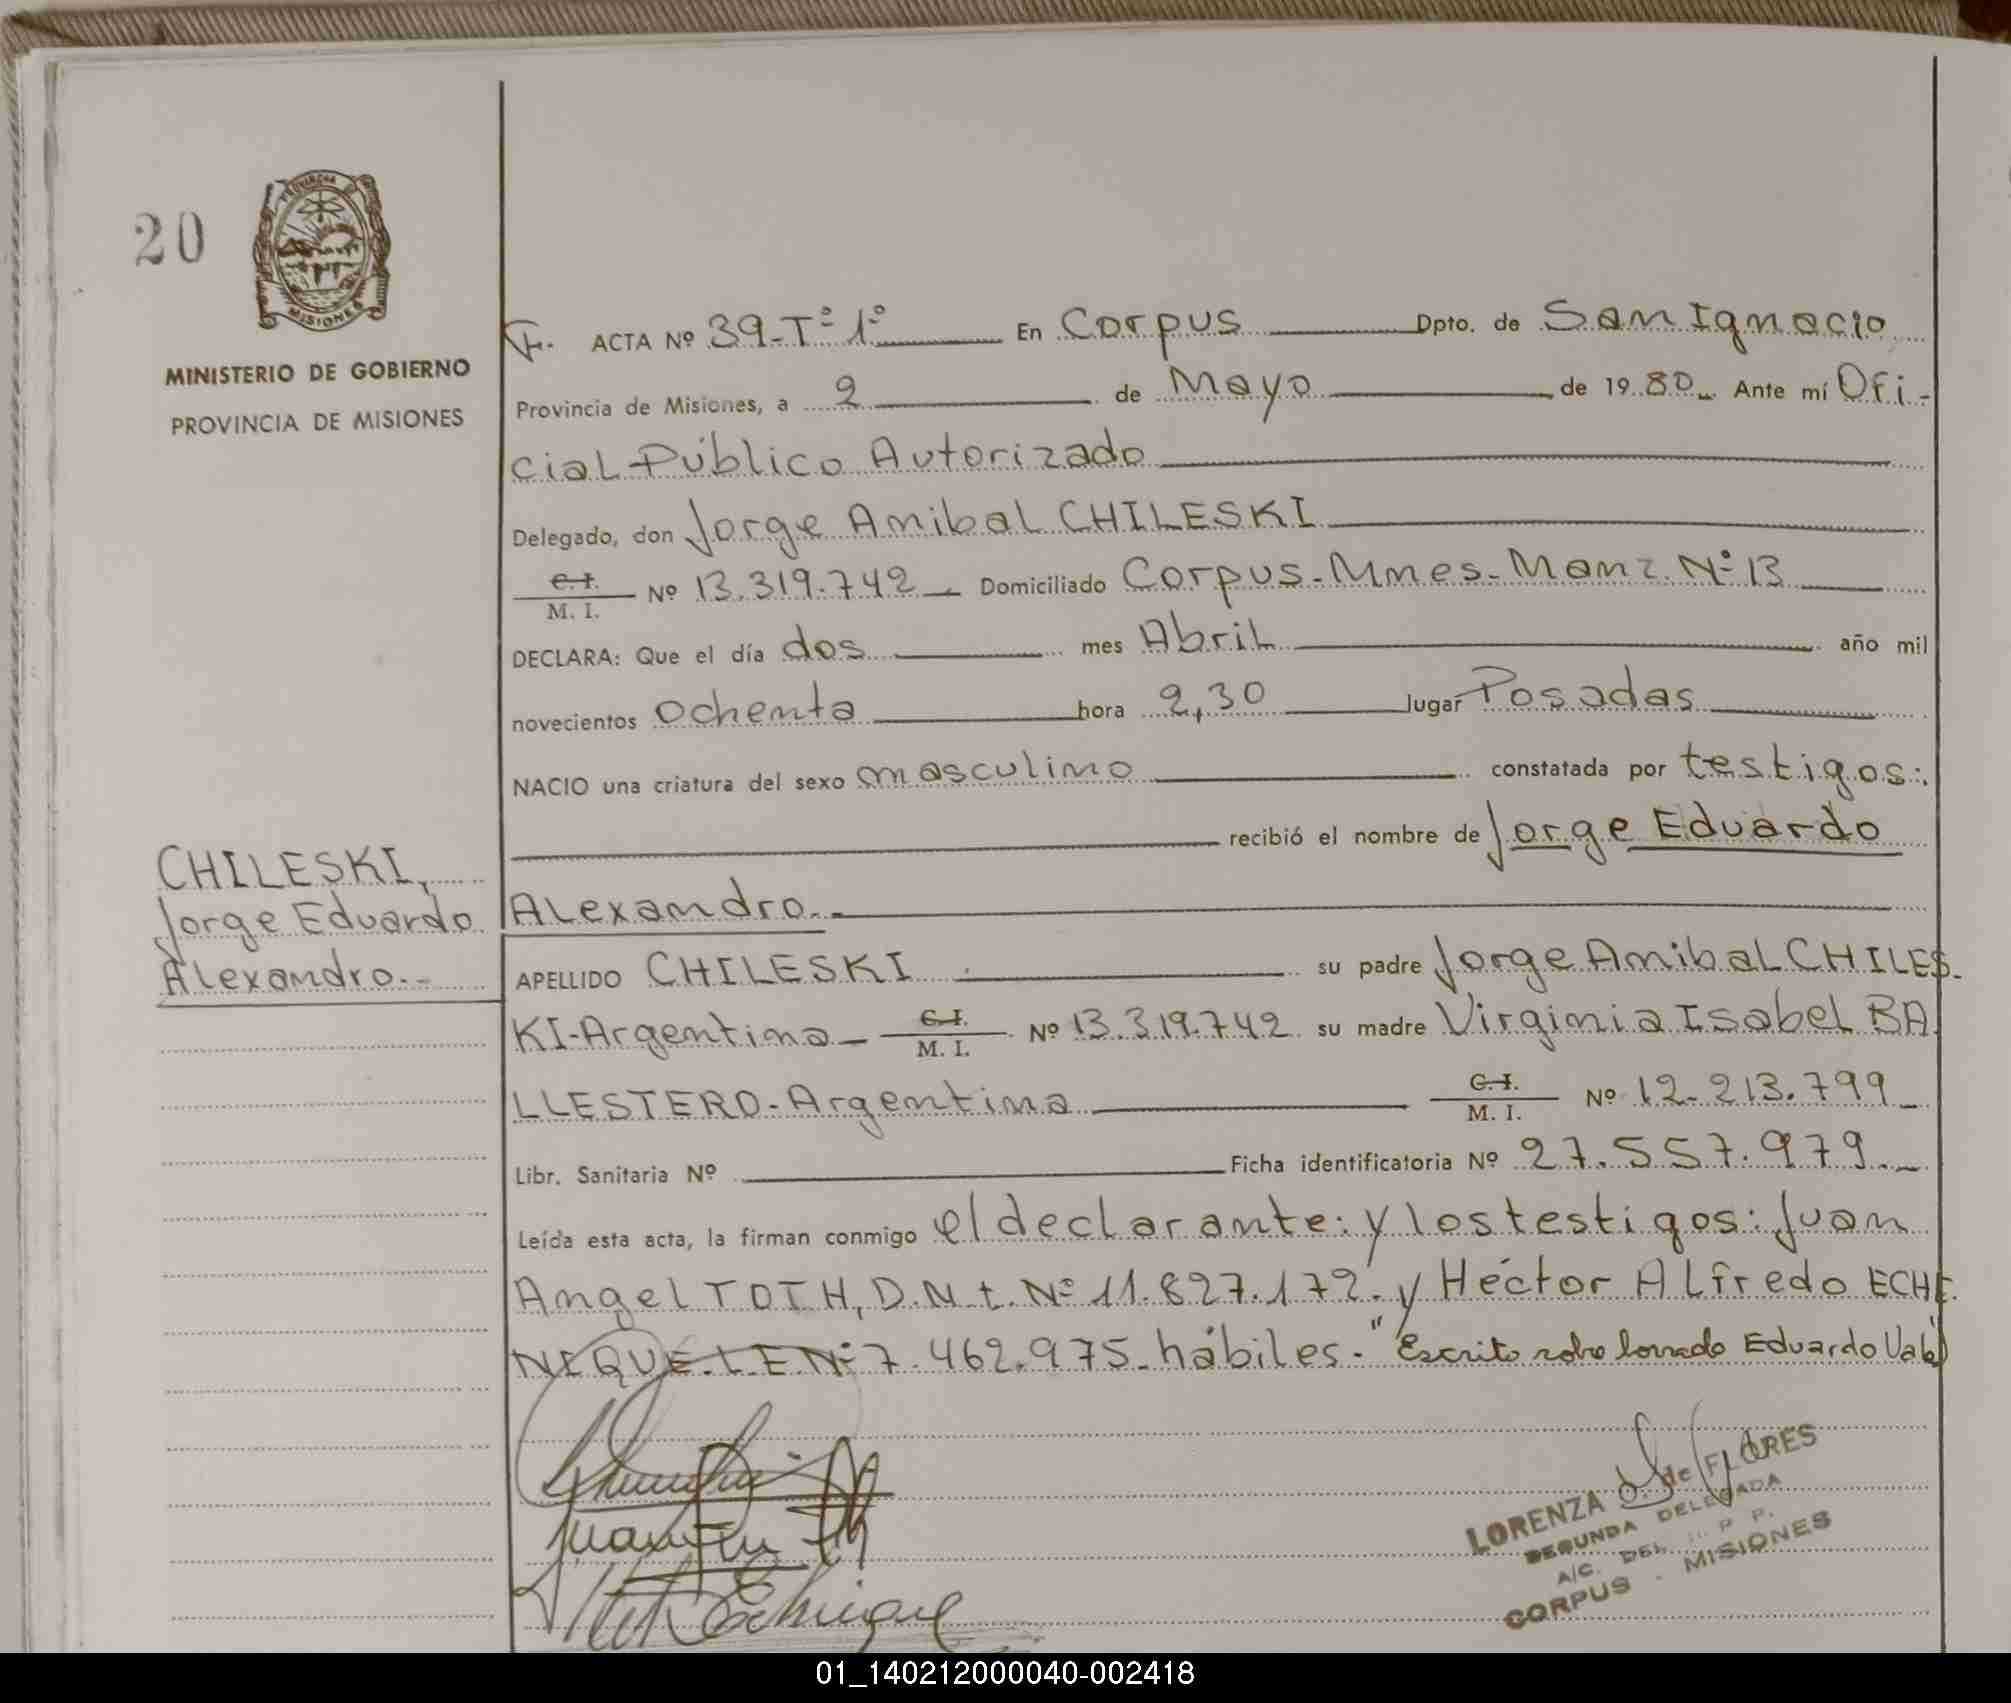 20
PROVINCIA DE
MISIONES
MINISTERIO DE GOBIERNO
PROVINCIA DE MISIONES
CHILESKI,
Jorge Eduardo
Alexandro.-
F. ACTA Nº 39-Tº 1º En Corpus Dpto. de San Ignacio
Provincia de Misiones, a 2 de Mayo de 1980 Ante mí Ofi-
cial Público Autorizado
Delegado, don Jorge Anibal CHILESKI
C.I. / M. I. Nº 13.319.742 Domiciliado Corpus-Mnes-Manz. Nº 13
DECLARA: Que el día dos mes Abril año mil
novecientos ochenta hora 2,30 lugar Posadas
NACIO una criatura del sexo masculino constatada por testigos:
recibió el nombre de Jorge Eduardo
Alexandro.-
APELLIDO CHILESKI su padre Jorge Anibal CHILES-
KI-Argentino C.I. / M. I. Nº 13.319.742 su madre Virginia Isabel BA
LLESTERO-Argentina C.I. / M. I. Nº 12-213.799
Libr. Sanitaria Nº Ficha identificatoria Nº 27.557.979.-
Leída esta acta, la firman conmigo el declarante: y los testigos: Juan
Angel TOTH, D.N.I. Nº 11.827.172. y Héctor Alfredo ECHE
NIQUE-L.E.Nº 7.462.975-hábiles-"Escrito sobre borrado Eduardo Vale"
LORENZA D. de FLORES
SEGUNDA DELEGADA
A/C. DEL R. P. P.
CORPUS - MISIONES
01_140212000040-002418